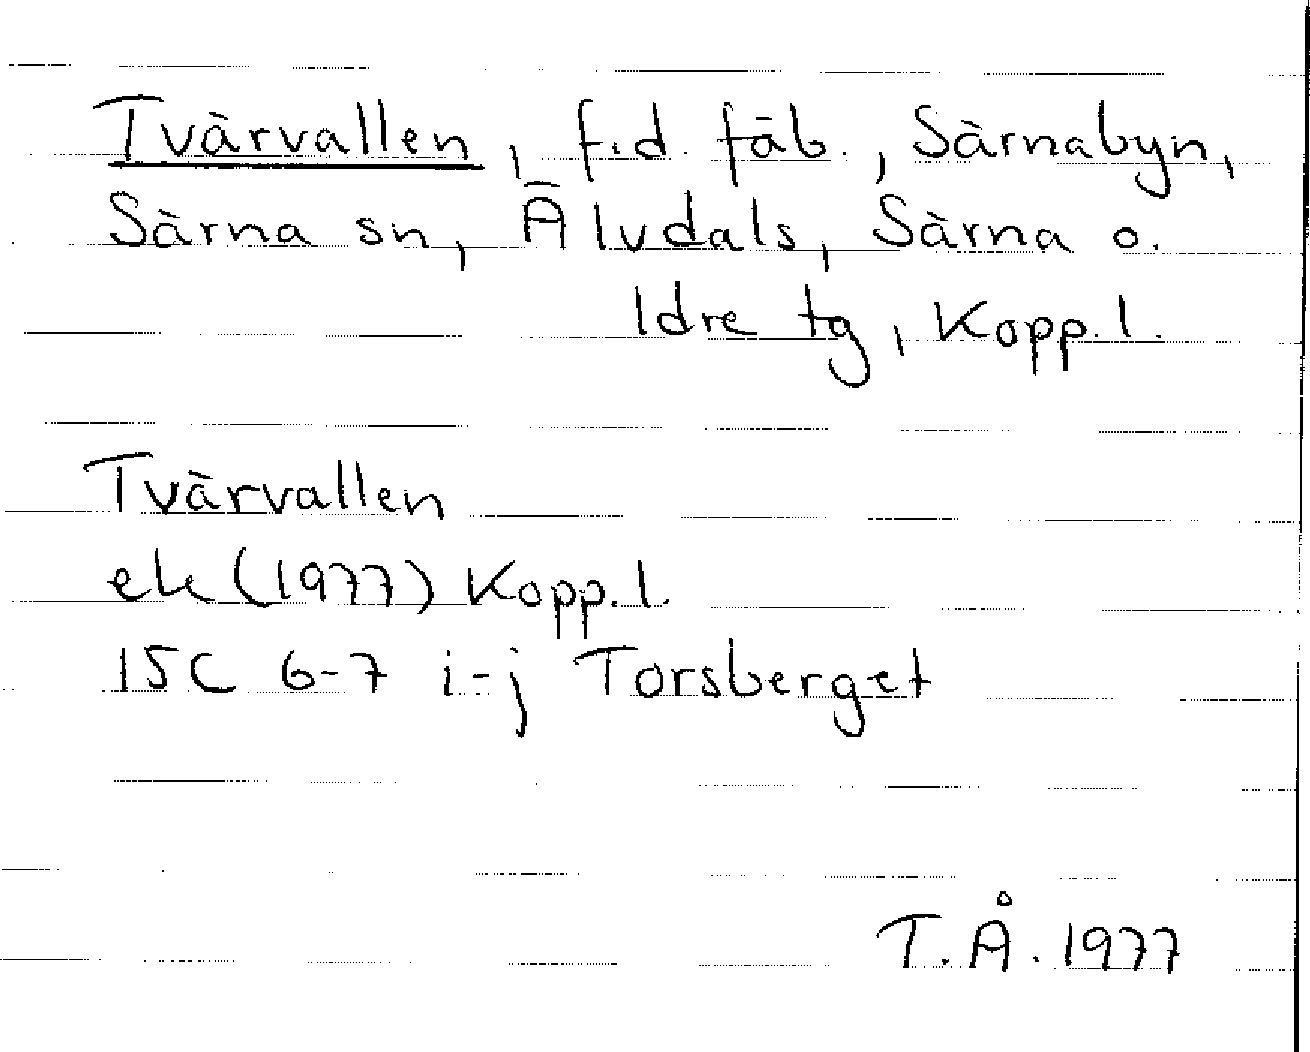 Tvärvallen, f.d. fäb., Särnabyn,
Särna sn, Älvdals, Särna o.
Idre tg, Kopp. l.
Tvärvallen
ek (1977) Kopp. l.
15C 6-7 i-j Torsberget
T.Å. 1977